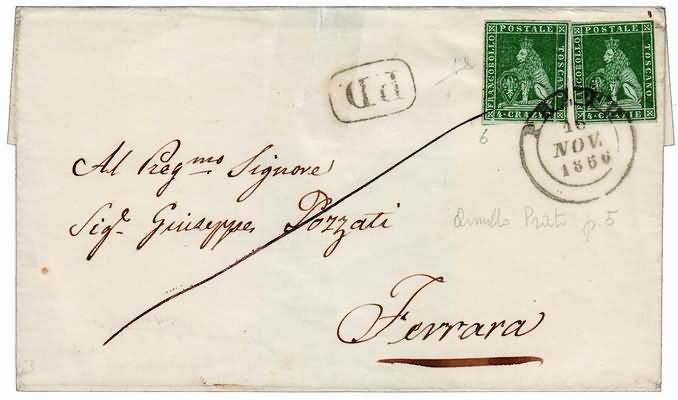 FRANCOBOLLO POSTALE TOSCANO 4 CRAZIE
FRANCOBOLLO POSTALE TOSCANO 4 CRAZIE
P.D.
PRATO
16
NOV.
1856
6
Al Preg.mo Signore
Sig.r Giuseppe Pozzati
Prato p. 5
Ferrara